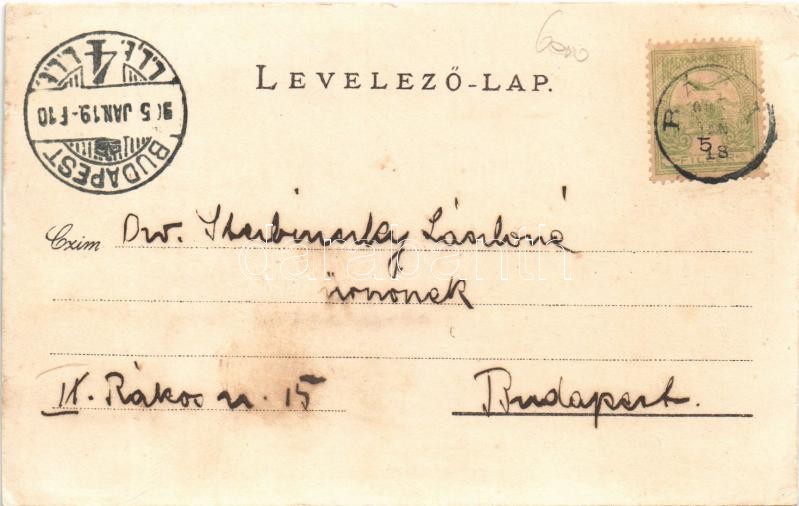 LEVELEZŐ-LAP.
BUDAPEST
905 JAN.19.-F10
4
5
18
Czim Dr. Sterbinszky Lászlóné
úrnőnek
IX. Rákos u. 15
Budapest.
darabanth